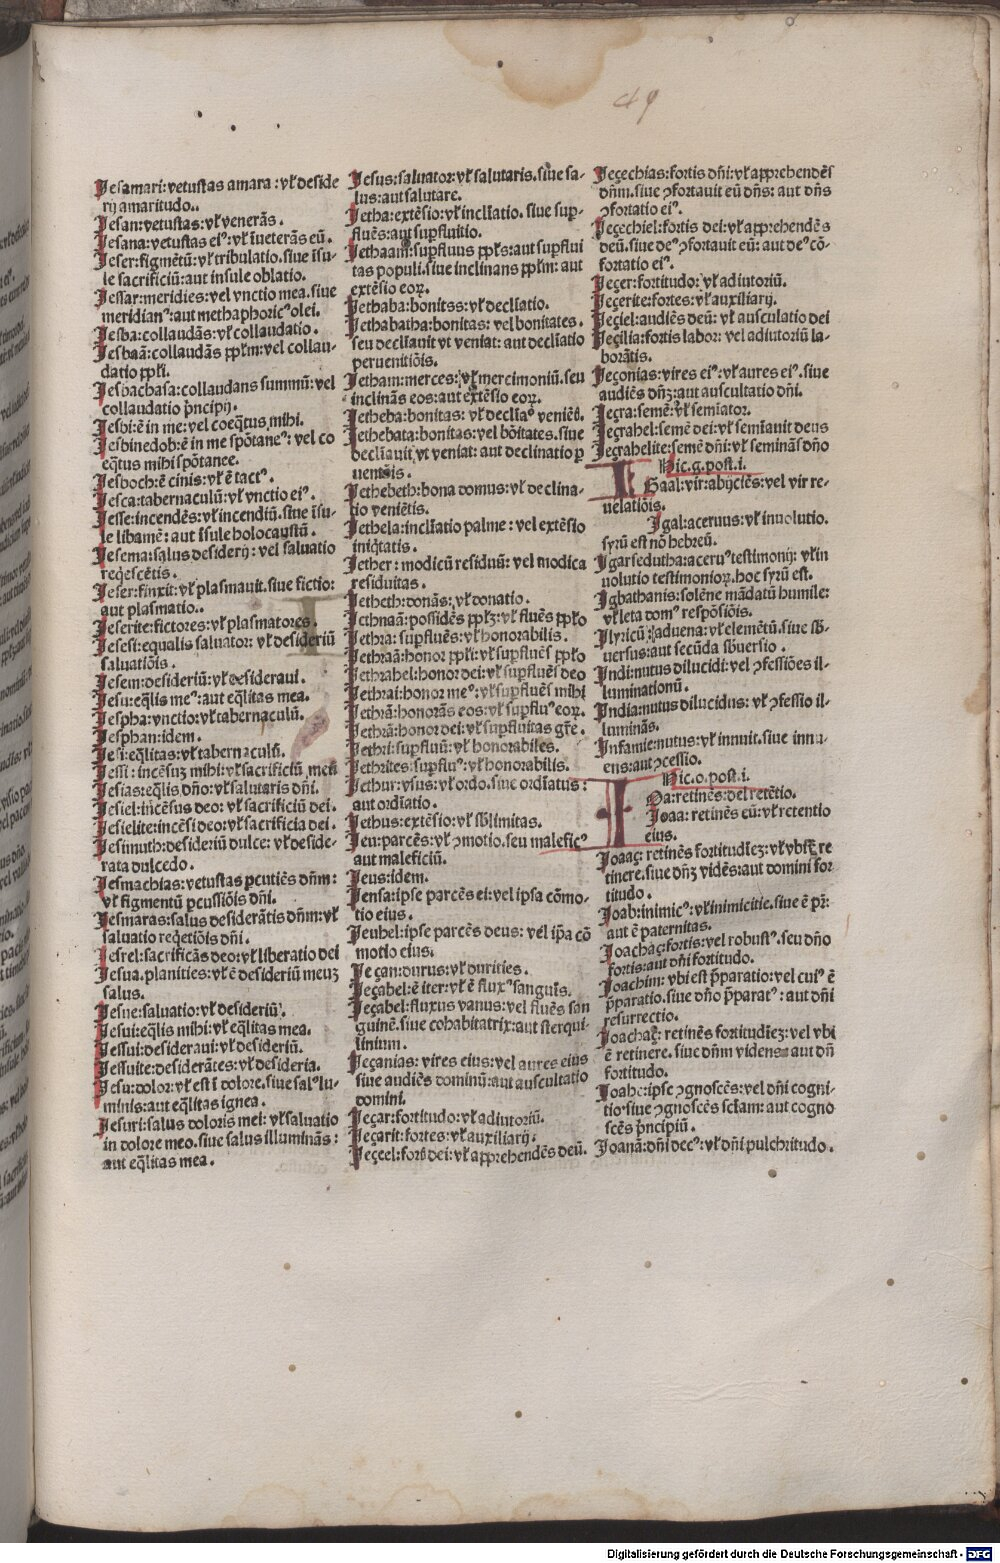 49
Jesamari: vetustas amara: vł deside
rij amaritudo..
Jesan: vetustas: vł venerās.
Jesana: vetustas eiꝰ: vł īueterās eū.
Jeser: figmētū: vł tribulatio. siue īsu-
le sacrificiū: aut insule oblatio.
Jessar: meridies: vel vnctio mea. siue
meridianꝰ: aut methaphoricꝰ olei.
Jesba: collaudās: vł collaudatio.
Jesbaā: collaudās ppłm: vel collau-
datio ppłi.
Jesbachasa: collaudans summū: vel
collaudatio p̄ncipij.
Jesbi: ē in me: vel coeq̄tus mihi.
Jesbinedob: ē in me spōtaneꝰ: vel co
eq̄tus mihi spōtanee.
Jesboch: ē cinis: vł ē tactꝰ.
Jesca: tabernaculū: vł vnctio eiꝰ.
Jesse: incendēs: vł incendiū. siue īsu-
le libamē: aut īsule holocaustū.
Jesema: salus desiderij: vel saluatio
reqͥescētis.
Jeser: finxit: vł plasmauit. siue fictio:
aut plasmatio..
Jeserite: fictores: vł plasmatores.
Jesesi: equalis saluator: vł desideriū
saluatiōis.
Jesem: desideriū: vł desideraui.
Jesu: eq̄lis meꝰ: aut eq̄litas mea.
Jespha: vnctio: vł tabernaculū.
Jesphan: idem.
Jesi: eq̄litas: vł tabernaculū.
Jessi: incēsuʒ mihi: vł sacrificiū meū
Jesias: eq̄lis dn̄o: vł salutaris dn̄i.
Jesiel: incēsus deo: vł sacrificiū dei.
Jesielite: incēsi deo: vł sacrificia dei.
Jesimuth: desideriū dulce: vł deside-
rata dulcedo.
Jesmachias: vetustas ꝑcutiēs dn̄m:
vł figmentū ꝑcussiōis dn̄i.
Jesmaras: salus desiderātis dn̄m: vł
saluatio reqͥetiōis dn̄i.
Jesrel: sacrificās deo: vł liberatio dei
Jesua. planities: vł ē desideriū meuʒ
salus.
Jesue: saluatio: vł desideriū.
Jesui: eq̄lis mihi: vł eq̄litas mea.
Jessui: desideraui: vł desideriū.
Jessuite: desiderātes: vł desideria.
Jesu: dolor: vł est ī dolore. siue salꝰ lu-
minis: aut eq̄litas ignea.
Jesuri: salus doloris mei: vł saluatio
in dolore meo. siue salus illuminās:
aut eq̄litas mea.
Jesus: saluator: vł salutaris. siue sa-
lus: aut salutare.
Jetha: extēsio: vł incłiatio. siue suꝑ-
fluēs: aut suꝑfluitio.
Jethaam: suꝑfluus ppłs: aut suꝑflui
tas populi. siue inclinans ppłm: aut
extēsio eoꝝ.
Jethaba: bonitss: vł declīatio.
Jethabatha: bonitas: vel bonitates.
seu declīauit vt veniat: aut declīatio
peruenitiōis.
Jetham: merces: vł mercimoniū. seu
inclinās eos: aut extēsio eoꝝ.
Jetheba: bonitas: vł declīaꝰ veniēs.
Jethebata: bonitas: vel bōitates. siue
declīauit vt veniat: aut declinatio ꝑ
uentōis.
Jethebeth: bona domus: vł declina-
tio veniētis.
Jethela: inclīatio palme: vel extēsio
iniqͥtatis.
Jether: modicū residuū: vel modica
residuitas.
Jetheth: donās: vł donatio.
Jethnaā: possidēs ppłʒ: vł fluēs ppło
Jethra: suꝑfluēs: vł honorabilis.
Jethraā: honor ppłi: vł suꝑfluēs ppło
Jethrahel: honor dei: vł suꝑfluēs deo
Jethrai: honor meꝰ: vł suꝑfluēs mihi
Jethrā: honorās eos: vł suꝑfluꝰ eoꝝ.
Jethrā: honor dei: vł suꝑfluitas gr̄e.
Jethri: suꝑfluū: vł honorabiles.
Jethrites: suꝑfluꝰ: vł honorabilis.
Jethur: vsus: vł ordo. siue ordīatus:
aut ordīatio.
Jethus: extēsio: vł sb̄limitas.
Jeu: parcēs: vł ꝯmotio. seu maleficꝰ
aut maleficiū.
Jeus: idem.
Jeusa: ipse parcēs ei: vel ipsa cōmo-
tio eius.
Jeuhel: ipse parcēs deus: vel ip̄a cō
motio eius.
Jeçan: durus: vł durities.
Jeçabel: ē iter: vł ē fluxꝰ sanguīs.
Jeçabel: fluxus vanus: vel fluēs san
guinē. siue cohabitatrix: aut sterqui
linium.
Jeçanias: vires eius: vel aures eius
siue audiēs dominū: aut auscultatio
domini.
Jeçar: fortitudo: vł adiutoriū.
Jeçarit: fortes: vł auxiliarij.
Jeçeel: fors̄ dei: vł apprehendēs deū.
Jeçechias: fortis dn̄i: vł apprehendēs
dn̄m. siue ꝯfortauit eū dn̄s: aut dn̄s
ꝯfortatio eiꝰ.
Jeçechiel: fortis dei: vł apprehendēs
deū. siue deꝰ ꝯfortauit eū: aut deꝰ cō-
fortatio eiꝰ.
Jeçer: fortitudo: vł adiutoriū.
Jeçerite: fortes: vł auxiliarij.
Jeçiel: audiēs deū: vł auscultatio dei
Jeçilia: fortis labor: vel adiutoriū la-
borātis.
Jeçonias: vires eiꝰ: vł aures eiꝰ. siue
audiēs dn̄ʒ: aut auscultatio dn̄i.
Jeçra: semē: vł semīator.
Jeçrahel: semē dei: vł semīauit deus
Jeçrahelite: semē dn̄i: vł seminās dn̄o
Hic. g. post. i.
IGaal: vir: abijciēs: vel vir re-
uelatiōis.
Jgal: aceruus: vł inuolutio.
syrū est nō hebreū.
Jgarsedutha: aceruꝰ testimonij: vł in
uolutio testimonioꝝ. hoc syrū est.
Jgbathanis: solēne mādatū humile:
vł leta domꝰ respōsiōis.
Jlyricū: aduena: vł elemētū. siue sb̄-
uersus: aut secūda sb̄uersio.
Jndi: nutus dilucidi: vel ꝯfessiōes il-
luminationū.
Jndia: nutus dilucidus: vł ꝯfessio il-
luminās.
Jnfamie: nutus: vł innuit. siue innu-
ens: aut ꝓcessio.
Hic. o. post. i.
IOa: retinēs: vel retētio.
Joaa: retinēs eū: vł retentio
eius.
Joaaç: retinēs fortitudīeʒ: vł vbi ē re
tinere. siue dn̄ʒ vidēs: aut domini for
titudo.
Joab: inimicꝰ: vł inimicitie. siue ē pr̄:
aut ē paternitas.
Joachaç: fortis: vel robustꝰ. seu dn̄o
fortis: aut dn̄i fortitudo.
Joachim: vbi est p̄paratio: vel cuiꝰ ē
p̄paratio. siue dn̄o p̄paratꝰ: aut dn̄i
resurrectio.
Joachaç: retinēs fortitudīeʒ: vel vbi
ē retinere. siue dn̄m videns: aut dn̄i
fortitudo.
Joahe: ipse ꝯgnoscēs: vel dn̄i cogni-
tio. siue ꝯgnoscēs sctam: aut cogno
scēs p̄ncipiū.
Joanā: dn̄i decꝰ: vł dn̄i pulchritudo.
Digitalisierung gefördert durch die Deutsche Forschungsgemeinschaft - DFG